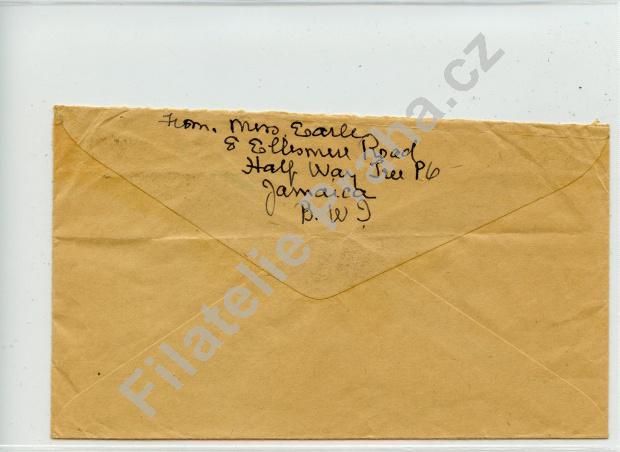 From. Miss Earle
8 Ellesmere Road
Half Way Tree P6
Jamaica
B. W I
Filatelie Praha.cz